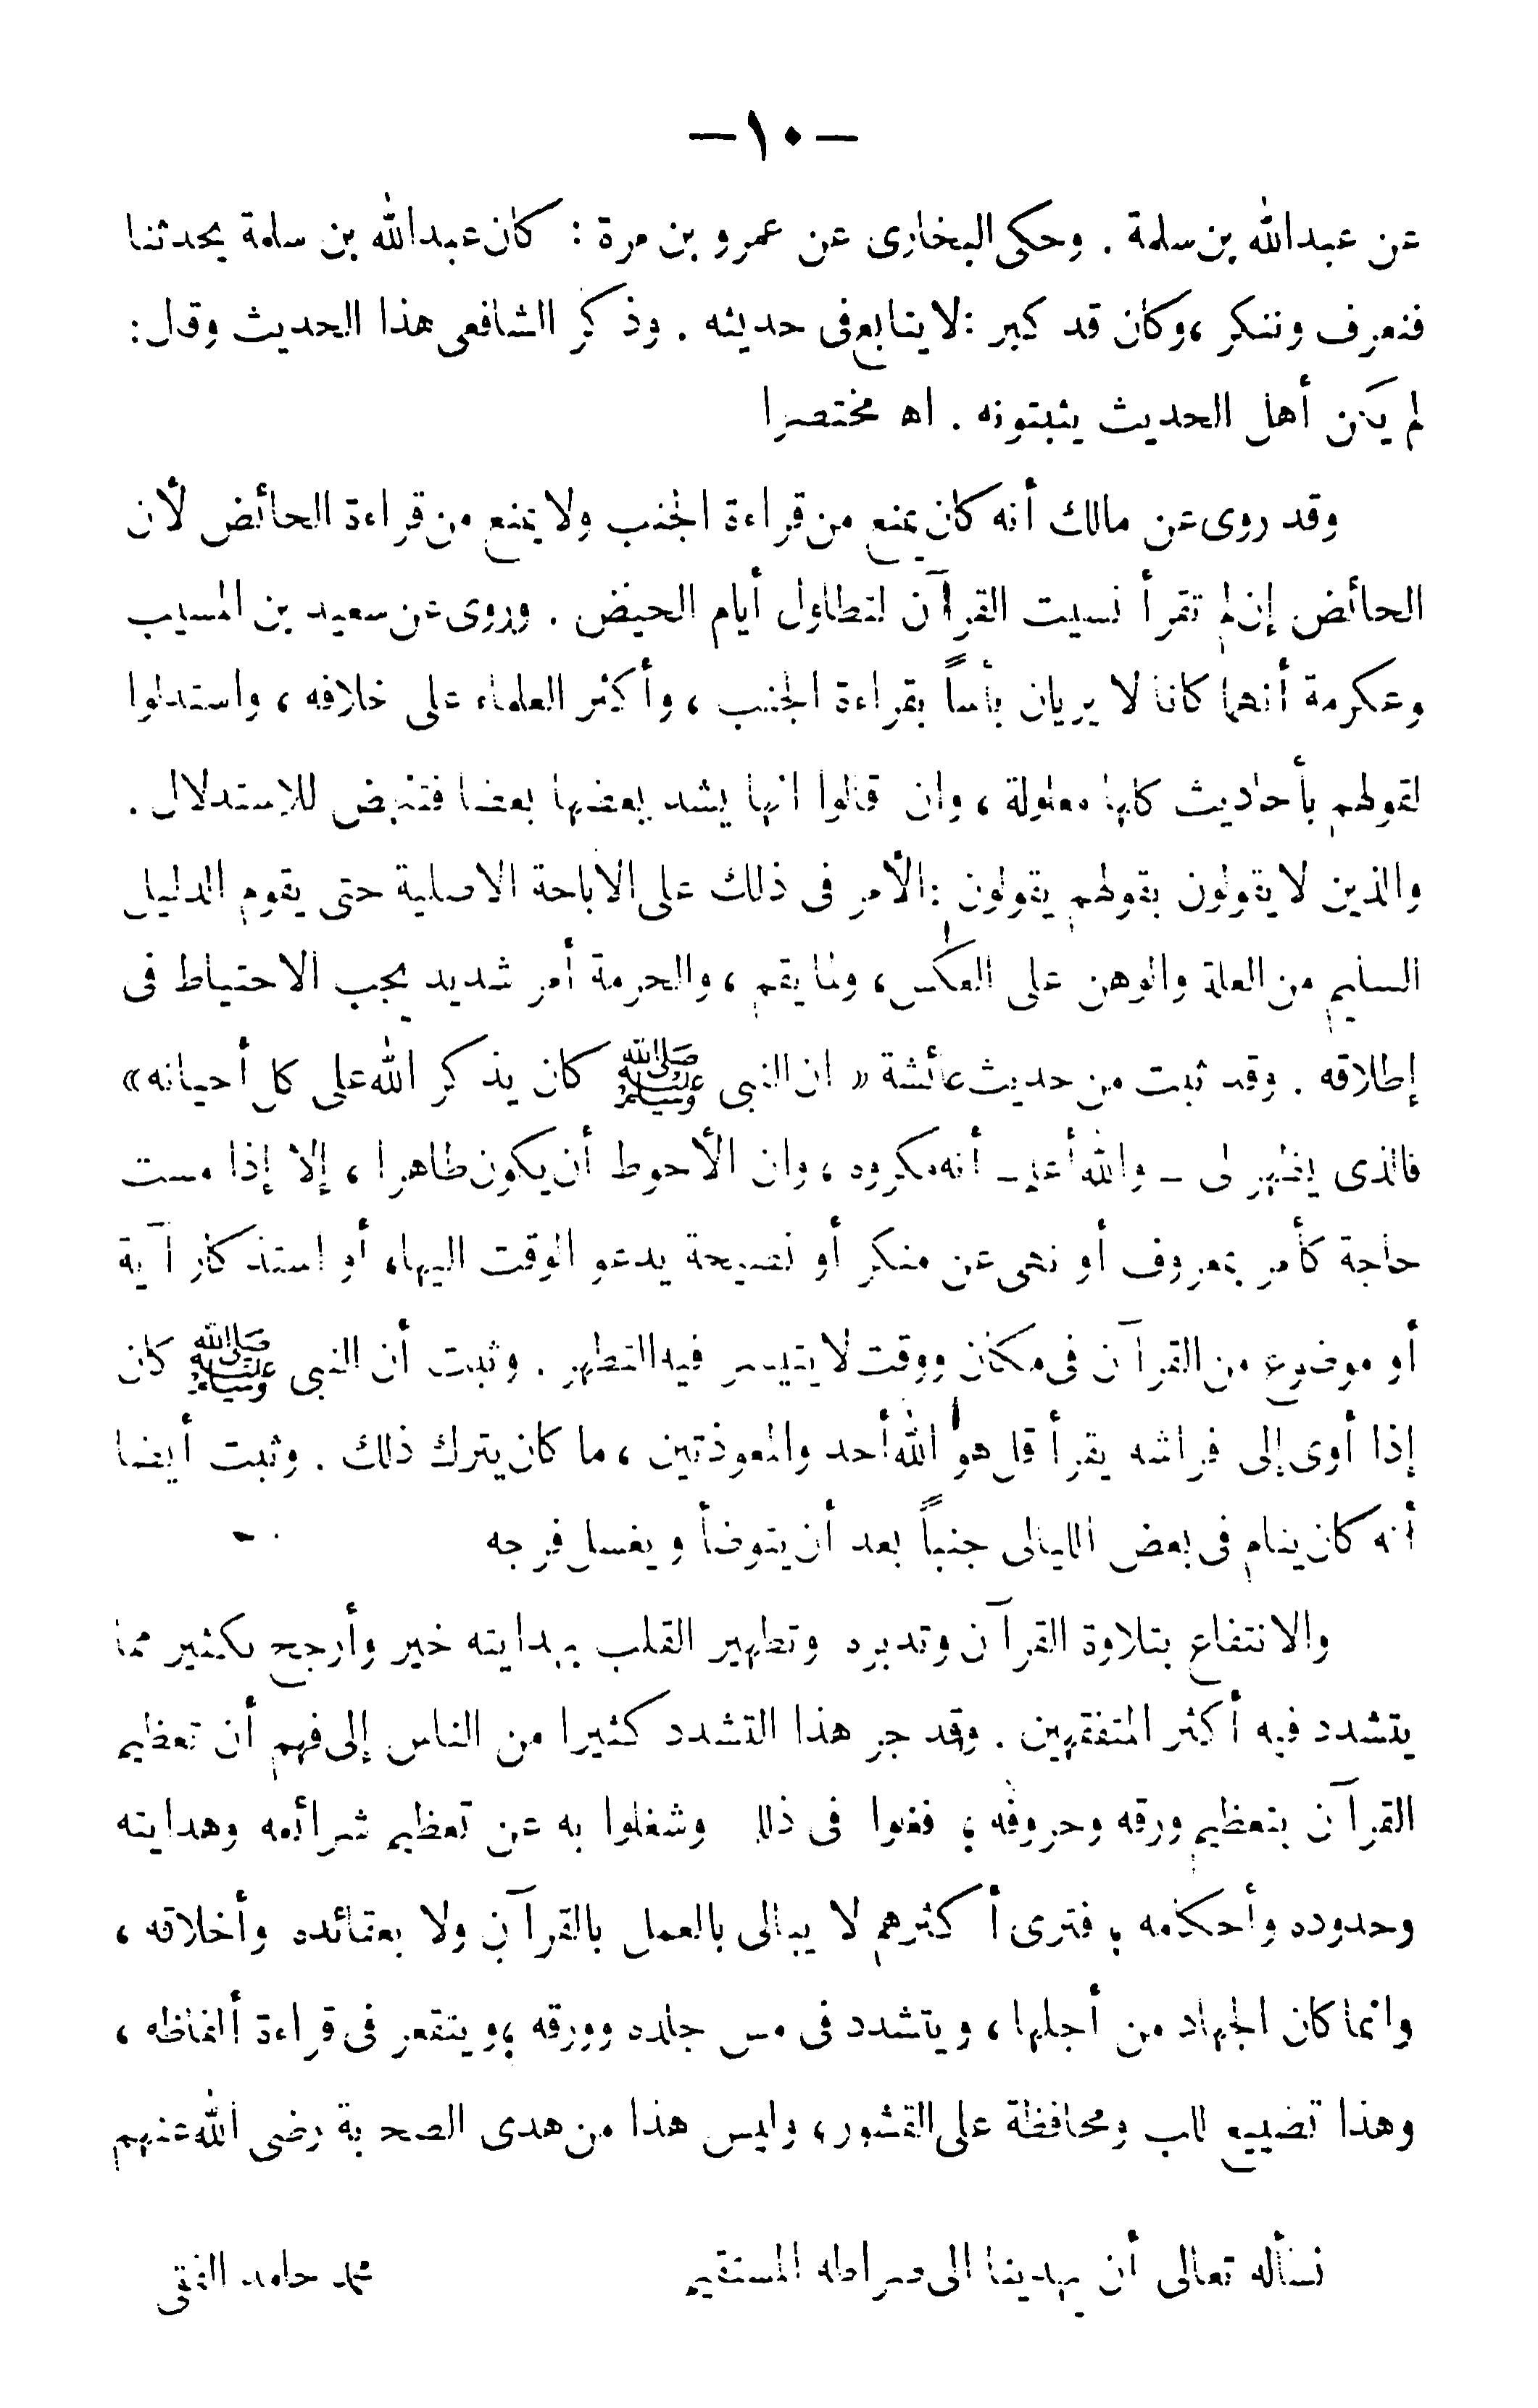 — ١٠ —
عن عبدالله بن سلمة . وحكى البخارى عن عمرو بن مرة : كان عبدالله بن سلمة يحدثنا
فنعرف وننكر ، وكان قد كبر : لا يتابع فى حديثه . وذكر الشافعى هذا الحديث وقال :
لم يكن أهل الحديث يثبتونه . اه مختصرا
وقد روى عن مالك أنه كان يمنع من قراءة الجنب ولا يمنع من قراءة الحائض لأن
الحائض إن لم تقرأ نسيت القرآن لتطاول أيام الحيض . وروى عن سعيد بن المسيب
وعكرمة أنهما كانا لا يريان بأساً بقراءة الجنب ، وأكثر العلماء على خلافه ، واستدلوا
لقولهم بأحاديث كلها معلولة ، وان قالوا انها يشد بعضها بعضا فتنهض للاستدلال .
والذين لا يقولون بقولهم يقولون : الأمر فى ذلك على الاباحة الاصلية حتى يقوم الدليل
السليم من العلة والوهن على العكس ، ولما يقم ، والحرمة أمر شديد يجب الاحتياط فى
إطلاقه . وقد ثبت من حديث عائشة « ان النبى ﷺ كان يذكر الله على كل أحيانه »
فالذى يظهر لى ـ والله أعلم ـ أنه مكروه ، وان الأحوط أن يكون طاهرا ، إلا إذا مست
حاجة كأمر بمعروف أو نهى عن منكر أو نصيحة يدعو الوقت اليها ، أو استذكار آية
أو موضوع من القرآن فى مكان ووقت لا يتيسر فيه التطهر . وثبت أن النبى ﷺ كان
إذا أوى إلى فراشه يقرأ قل هو الله أحد والمعوذتين ، ما كان يترك ذلك . وثبت أيضا
أنه كان ينام فى بعض الليالى جنباً بعد أن يتوضأ ويغسل فرجه
والانتفاع بتلاوة القرآن وتدبره وتطهير القلب بهدايته خير وأرجح بكثير مما
يتشدد فيه أكثر المتفقهين . وقد جر هذا التشدد كثيرا من الناس إلى فهم أن تعظيم
القرآن بتعظيم ورقه وحروفه ؛ فغلوا فى ذلك وشغلوا به عن تعظيم شرائعه وهدايته
وحدوده وأحكامه ؛ فترى أكثرهم لا يبالى بالعمل بالقرآن ولا بعقائده وأخلاقه ،
وانما كان الجهاد من أجلها ، ويتشدد فى مس جلده وورقه ؛ ويتقعر فى قراءة ألفاظه ،
وهذا تضييع للب ومحافظة على القشور ، وليس هذا من هدى الصحابة رضى الله عنهم
نسأله تعالى أن يهدينا الى صراطه المستقيم محمد حامد الفقى